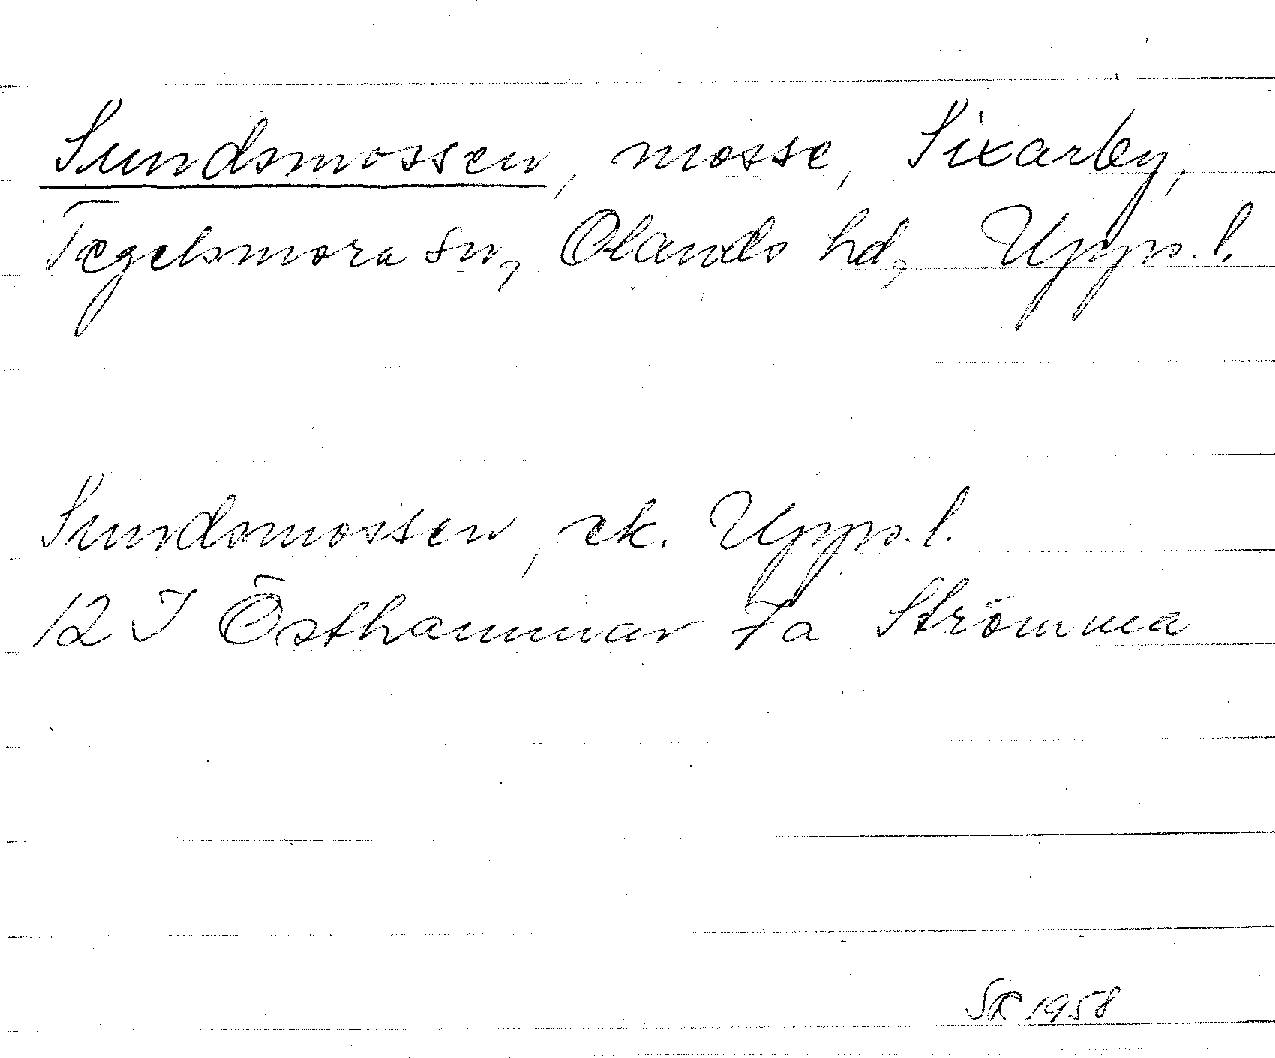 Sundsmossen, mosse, Sixarby,
Tegelsmora sn, Olands hd, Upps. l.
Sundsmossen, ek. Upps. l.
12 I Östhammar 7a Strömma
SK 1958